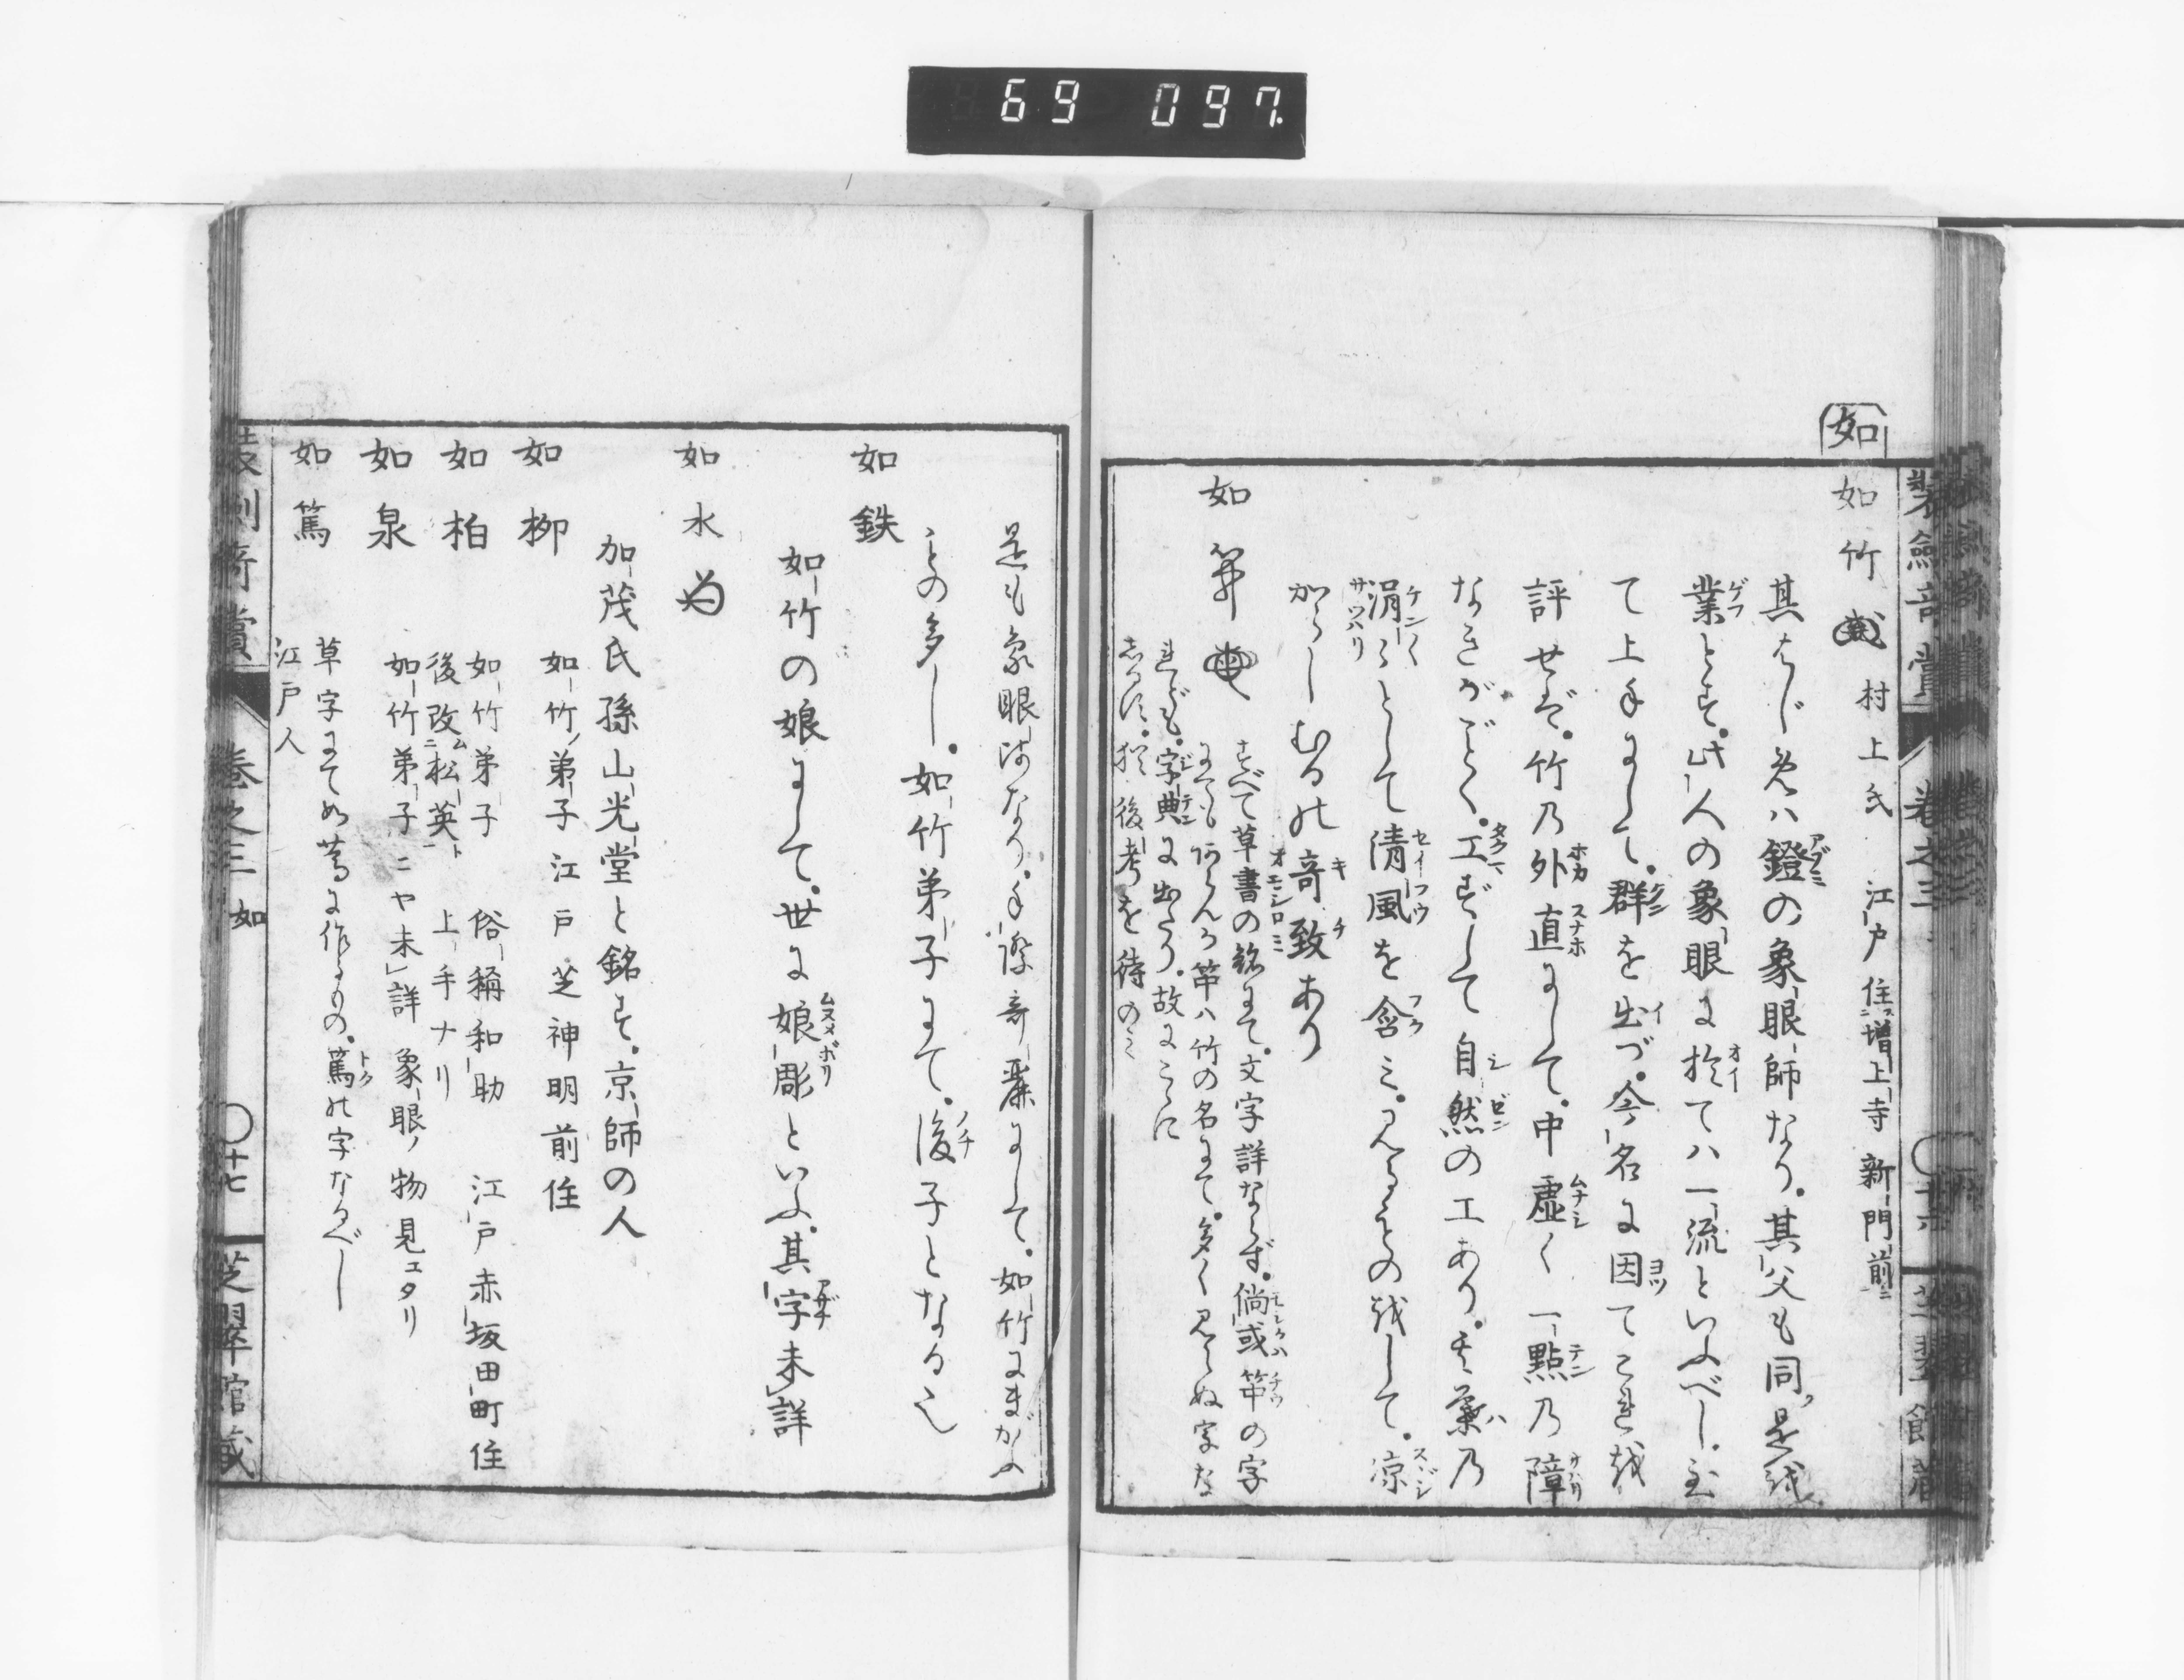 69 097
装劍竒賞
巻之三
如
如竹 村上氏 江戸住増上寺新門前
其はじめハ鐙の象眼師なり。其父も同。是を
業とす。此人の象眼に於てハ一流といふべし。至
て上手にして。群を出づ。今名に因てこれを
評せバ。竹乃外直にして。中虚く一點乃障
なきがごとく。工ずして自然の工あり。其葉乃
涓々として清風を含ミ。みるものをして。凉
からしむるの竒致あり
如
すべて草書の銘にて。文字詳ならず。倘或笧の字
字典に出たり。故にこゝに
しるす。猶後考を待のミ
是も象眼師なり。手際奇麗にして。如竹にまがふ
もの多し。如竹弟子にて。後子となる也
如鉄
如竹の娘にして。世に娘彫といふ。其字未詳
如水
加茂氏孫山光堂と銘す。京師の人
如柳 如竹ノ弟子江戸芝神明前住
如柏 如竹弟子 俗稱和助 江戸赤坂田町住
後改ニム松英ト一 上手ナリ
如泉 如竹弟子ニヤ未詳 象眼ノ物見エタリ
如篤 草字にて如蔦に作るもの。篤の字なるべし
江戸人
装劍竒賞 巻之三 如 〇十七 芝翠館藏